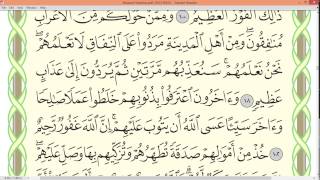 ذَٰلِكَ ٱلْفَوْزُ ٱلْعَظِيمُ ١٠٠ وَمِمَّنْ حَوْلَكُم مِّنَ ٱلْأَعْرَابِ
مُنَٰفِقُونَ ۖ وَمِنْ أَهْلِ ٱلْمَدِينَةِ مَرَدُوا۟ عَلَى ٱلنِّفَاقِ لَا تَعْلَمُهُمْ ۖ
نَحْنُ نَعْلَمُهُمْ ۚ سَنُعَذِّبُهُم مَّرَّتَيْنِ ثُمَّ يُرَدُّونَ إِلَىٰ عَذَابٍ
عَظِيمٍ ١٠١ وَءَاخَرُونَ ٱعْتَرَفُوا۟ بِذُنُوبِهِمْ خَلَطُوا۟ عَمَلًا صَٰلِحًا
وَءَاخَرَ سَيِّئًا عَسَى ٱللَّهُ أَن يَتُوبَ عَلَيْهِمْ ۚ إِنَّ ٱللَّهَ غَفُورٌ رَّحِيمٌ
١٠٢ خُذْ مِنْ أَمْوَٰلِهِمْ صَدَقَةً تُطَهِّرُهُمْ وَتُزَكِّيهِم بِهَا وَصَلِّ عَلَيْهِمْ ۖ